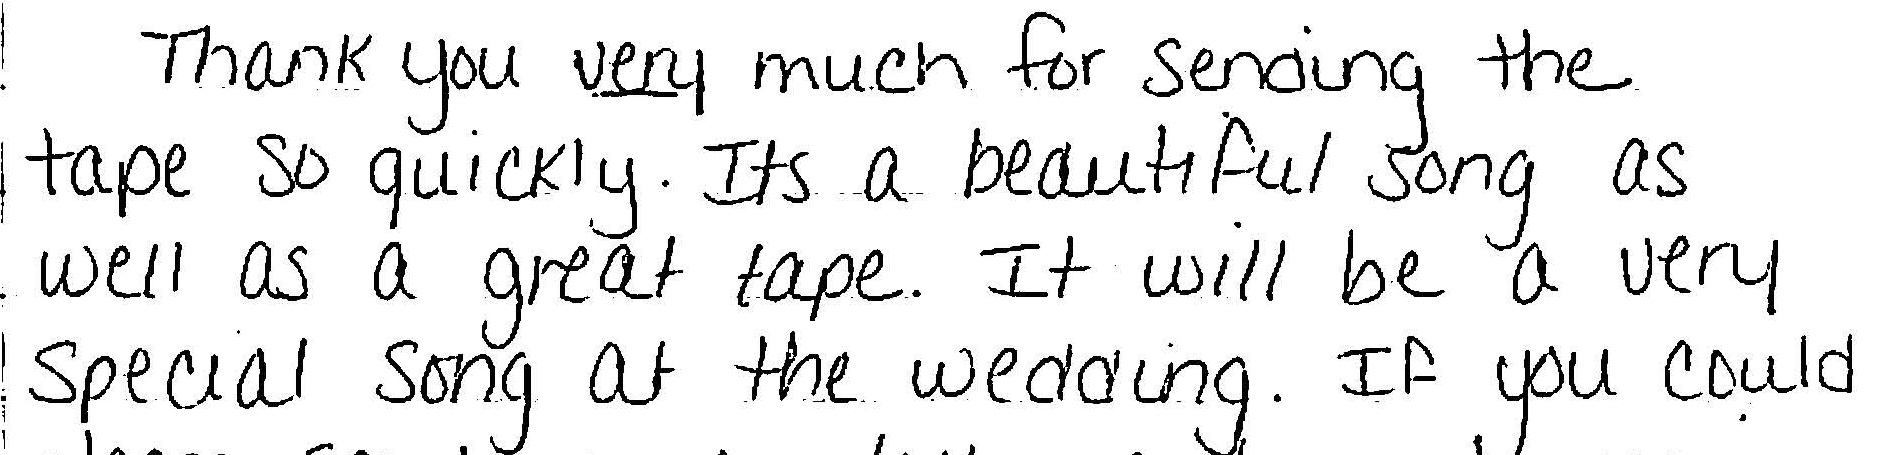 Thank you very much for sending the
tape so quickly. Its a beautiful song as
well as a great tape. It will be a very
special song at the wedding. If you could